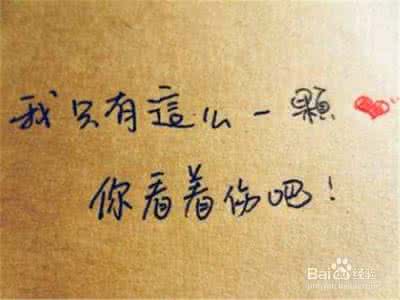 我只有這么一顆
你看着伤吧！
Baidu经验